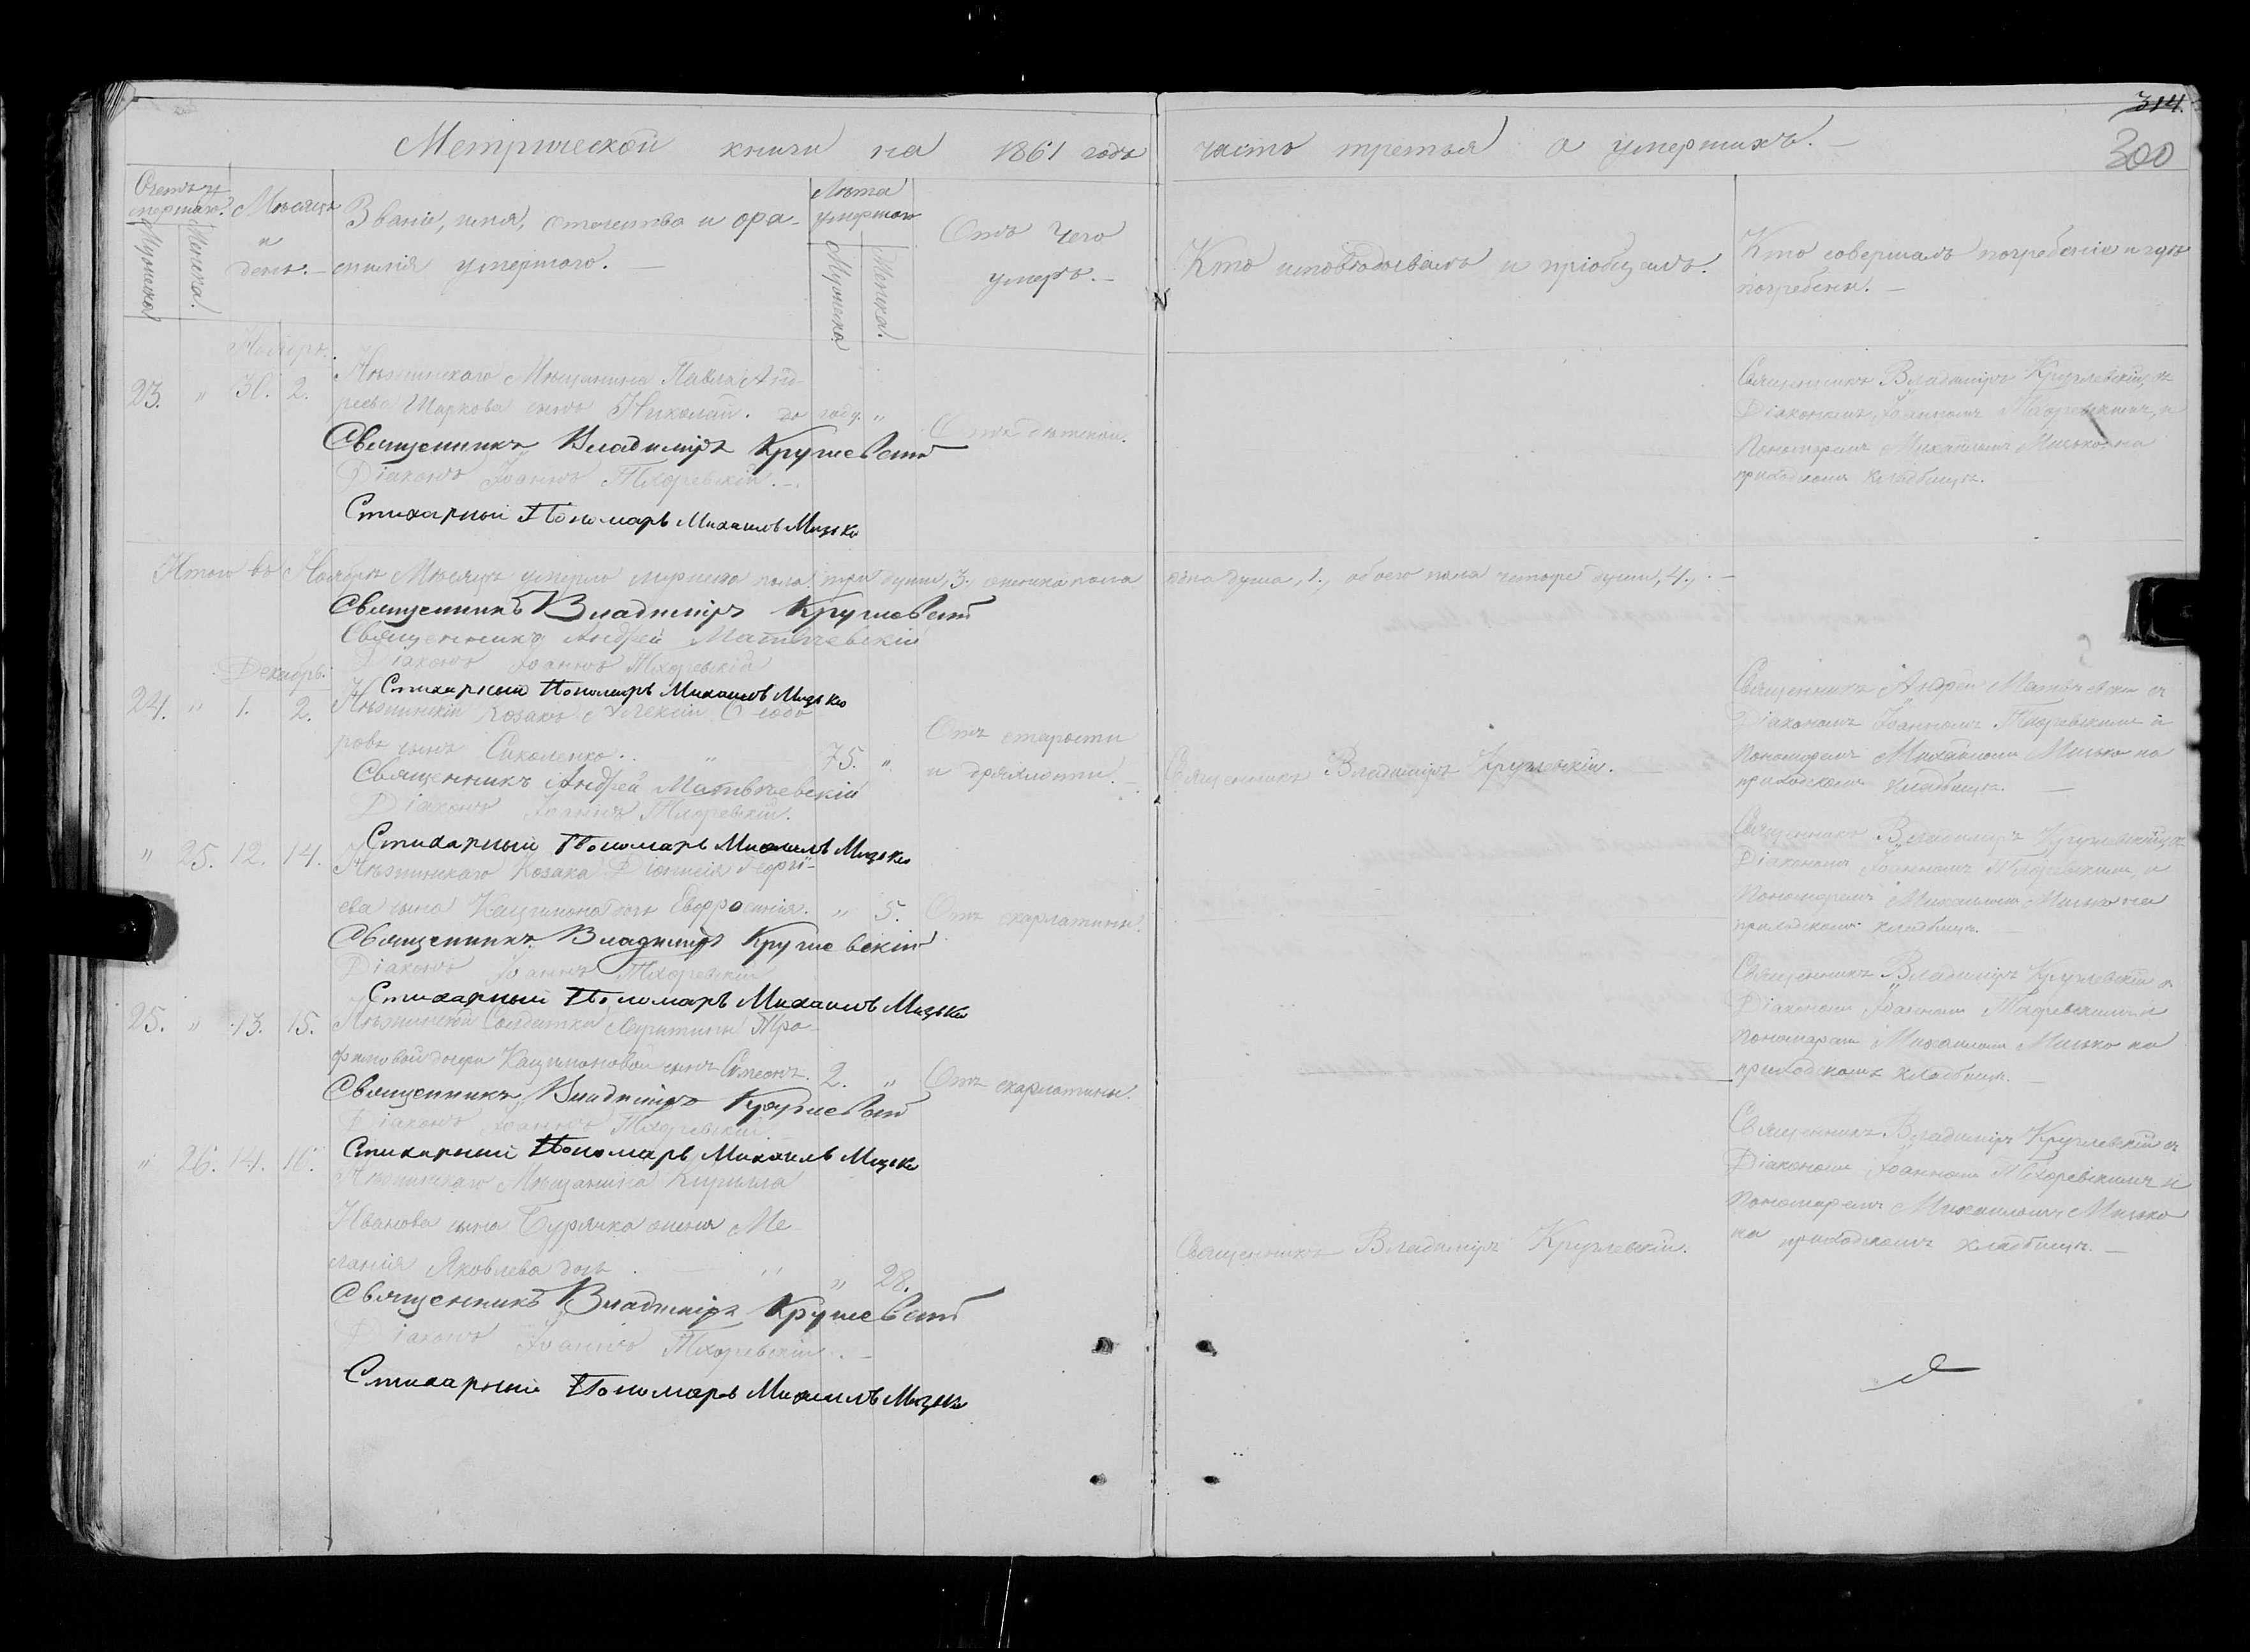 314.
300
Метрической книги на 1861 годъ часть третья о умершихъ.
Счетъ умершихъ.
Мужеска
Женска.
Мѣсяцъ
и
день.
Званіе, имя, отчество и фа-
милія умершаго.
Лѣта
умершаго
Мужеска
Женска.
Отъ чего
умеръ.
Кто исповѣдывалъ и пріобщалъ.
Кто совершалъ погребеніе и гдѣ
погребенъ.
Ноябрь.
23. " 30. 2. Нѣжинскаго Мѣщанина Павла Анд-
реева Шаркова сынъ Николай. до году. "
Священникъ Владиміръ Кружевскій
Діаконъ Іоаннъ Тхоревскій.
Стихарный Пономарь Михаилъ Мизько
Священникъ Владиміръ Кружевскій съ
Діакономъ Іоанномъ Тхоревскимъ, и
Пономаремъ Михаиломъ Мизько на
приходскомъ кладбищѣ.
Итого въ Ноябрѣ Мѣсяцѣ умерло мужеска пола три души, 3. женска пола една душа, 1., обоего пола четыре души, 4.,
Священникъ Владиміръ Кружевскій
Священникъ Андрей Матвѣевскій
Діаконъ Іоаннъ Тхоревскій
Стихарный Пономарь Михаилъ Мизько
Декабрь.
24. " 1. 2. Нѣжинскій Козакъ Алексій Ѳеодо-
ровъ сынъ Сиколенко. 75. "
Отъ старости
и дряхлости.
Священникъ Владиміръ Кружевскій.
Священникъ Андрей Матвѣевскій съ
Діакономъ Іоанномъ Тхоревскимъ и
Пономаремъ Михаиломъ Мизько на
приходскомъ кладбищѣ.
Священникъ Андрей Матвѣевскій
Діаконъ Іоаннъ Тхоревскій.
Стихарный Пономарь Михаилъ Мизько
" 25. 12. 14. Нѣжинскаго Козака Діонисія Георгі-
ева сына Кацимона дочь Евфросинія. " 5. Отъ скарлатины.
Священникъ Владиміръ Кружевскій съ
Діакономъ Іоанномъ Тхоревскимъ, и
Пономаремъ Михаиломъ Мизько на
приходскомъ кладбищѣ.
Священникъ Владиміръ Кружевскій
Діаконъ Іоаннъ Тхоревскій
Стихарный Пономарь Михаилъ Мизько
25. " 13. 15. Нѣжинской Солдатки
дочери Кацимоновой сынъ Симеонъ. 2. " Отъ скарлатины.
Священникъ Владиміръ Кружевскій съ
Діакономъ Іоанномъ Тхоревскимъ и
Пономаремъ Михаиломъ Мизько на
приходскомъ кладбищѣ.
Священникъ Владиміръ Кружевскій
Діаконъ Іоаннъ Тхоревскій.
Стихарный Пономарь Михаилъ Мизько
" 26. 14. 16. Нѣжинскаго Мѣщанина Кирилла
Иванова сына Буряка жена Ме-
ланія Яковлева дочь " 28.
Священникъ Владиміръ Кружевскій.
Священникъ Владиміръ Кружевскій съ
Діакономъ Іоанномъ Тхоревскимъ и
Пономаремъ Михаиломъ Мизько
на приходскомъ кладбищѣ.
Священникъ Владиміръ Кружевскій
Діаконъ Іоаннъ Тхоревскій.
Стихарный Пономарь Михаилъ Мизько